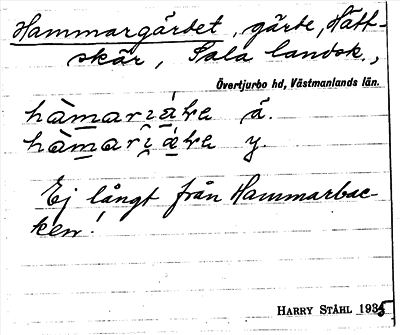 Hammargärdet, gärde, Hätt-
skär, Sala landsk.,
Övertjurbo hd, Västmanlands län.
å.
y.
Ej långt från Hammarbac-
ken.
HARRY STÅHL 1935